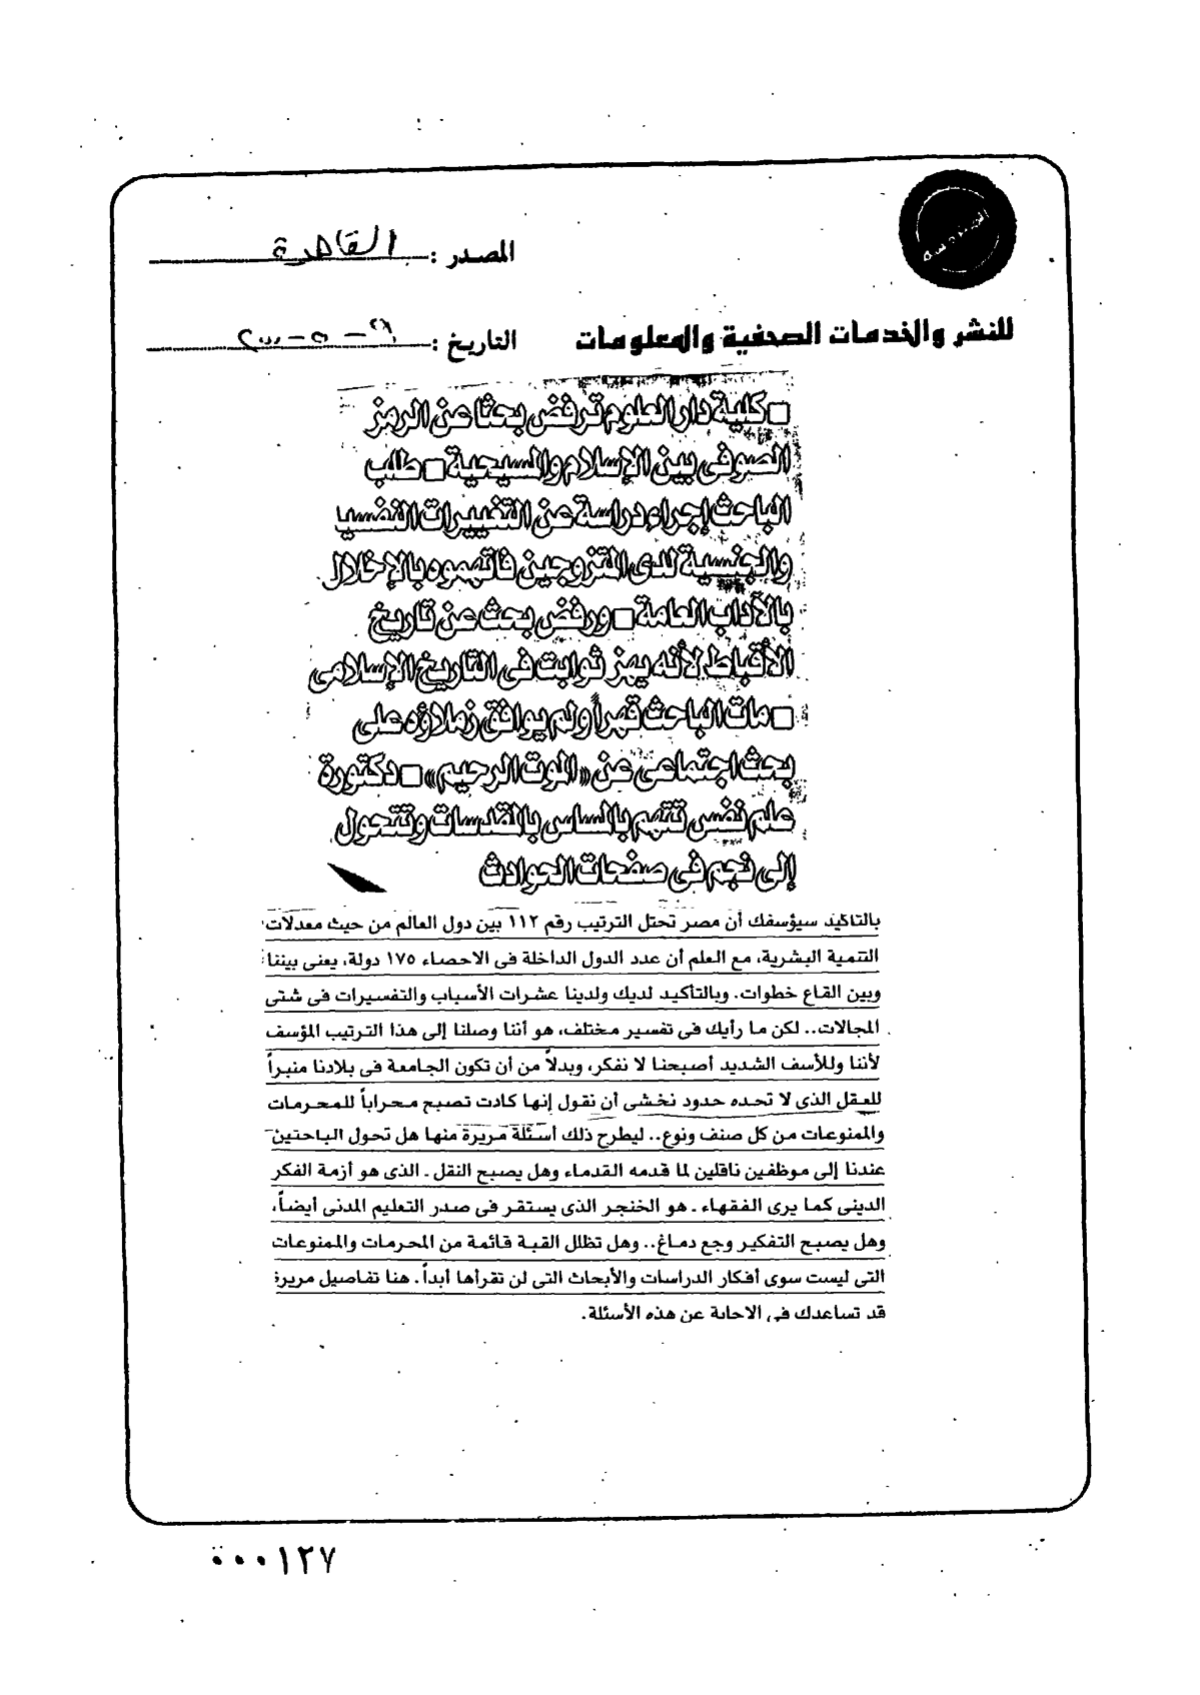 المصدر : القاهرة
للنشر والخدمات الصحفية والمعلومات
التاريخ :
□ كلية دار العلوم ترفض بحثا عن الرمز
الصوفى بين الإسلام والمسيحية □ طلب
الباحث إجراء دراسة عن التغييرات النفسيا
والجنسية لدى المتزوجين فاتهموه بالإخلال
بالآداب العامة □ ورفض بحث عن تاريخ
الأقباط لأنه يهز ثوابت فى التاريخ الإسلامى
□ مات الباحث قهراً ولم يوافق زملاؤه على
بحث اجتماعى عن «الموت الرحيم» □ دكتورة
علم نفس تتهم بالمساس بالمقدسات وتتحول
إلى نجم فى صفحات الحوادث
بالتأكيد سيؤسفك أن مصر تحتل الترتيب رقم ١١٢ بين دول العالم من حيث معدلات
التنمية البشرية، مع العلم أن عدد الدول الداخلة فى الاحصاء ١٧٥ دولة، يعنى بيننا
وبين القاع خطوات. وبالتأكيد لديك ولدينا عشرات الأسباب والتفسيرات فى شتى
المجالات.. لكن ما رأيك فى تفسير مختلف، هو أننا وصلنا إلى هذا الترتيب المؤسف
لأننا وللأسف الشديد أصبحنا لا نفكر، وبدلاً من أن تكون الجامعة فى بلادنا منبراً
للعقل الذى لا تحده حدود نخشى أن نقول إنها كادت تصبح محراباً للمحرمات
والممنوعات من كل صنف ونوع.. ليطرح ذلك أسئلة مريرة منها هل تحول الباحثين
عندنا إلى موظفين ناقلين لما قدمه القدماء وهل يصبح النقل ـ الذى هو أزمة الفكر
الدينى كما يرى الفقهاء ـ هو الخنجر الذى يستقر فى صدر التعليم المدنى أيضاً،
وهل يصبح التفكير وجع دماغ.. وهل تظلل القبة قائمة من المحرمات والممنوعات
التى ليست سوى أفكار الدراسات والأبحاث التى لن تقرأها أبداً. هنا تفاصيل مريرة
قد تساعدك فى الاجابة عن هذه الأسئلة.
٠٠٠١٢٧